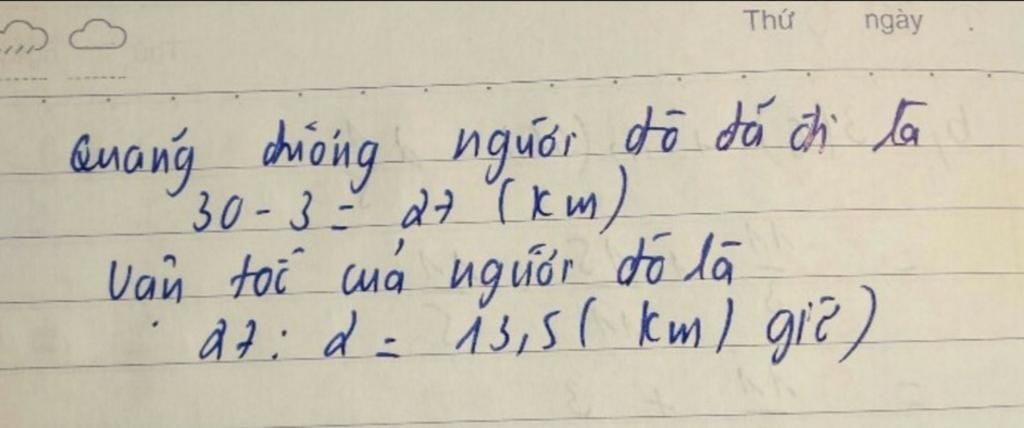 Thứ ngày .
Quãng đường người đó đã đi là
30 - 3 = 27 (km)
Vận tốc của người đó là
27 : 2 = 13,5 (km / giờ)